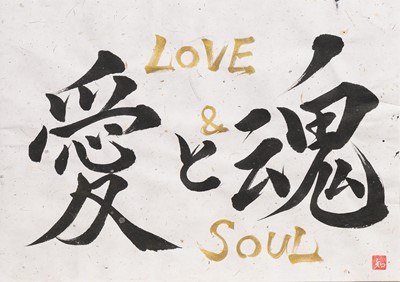 LOVE
愛と魂
&
SOUL